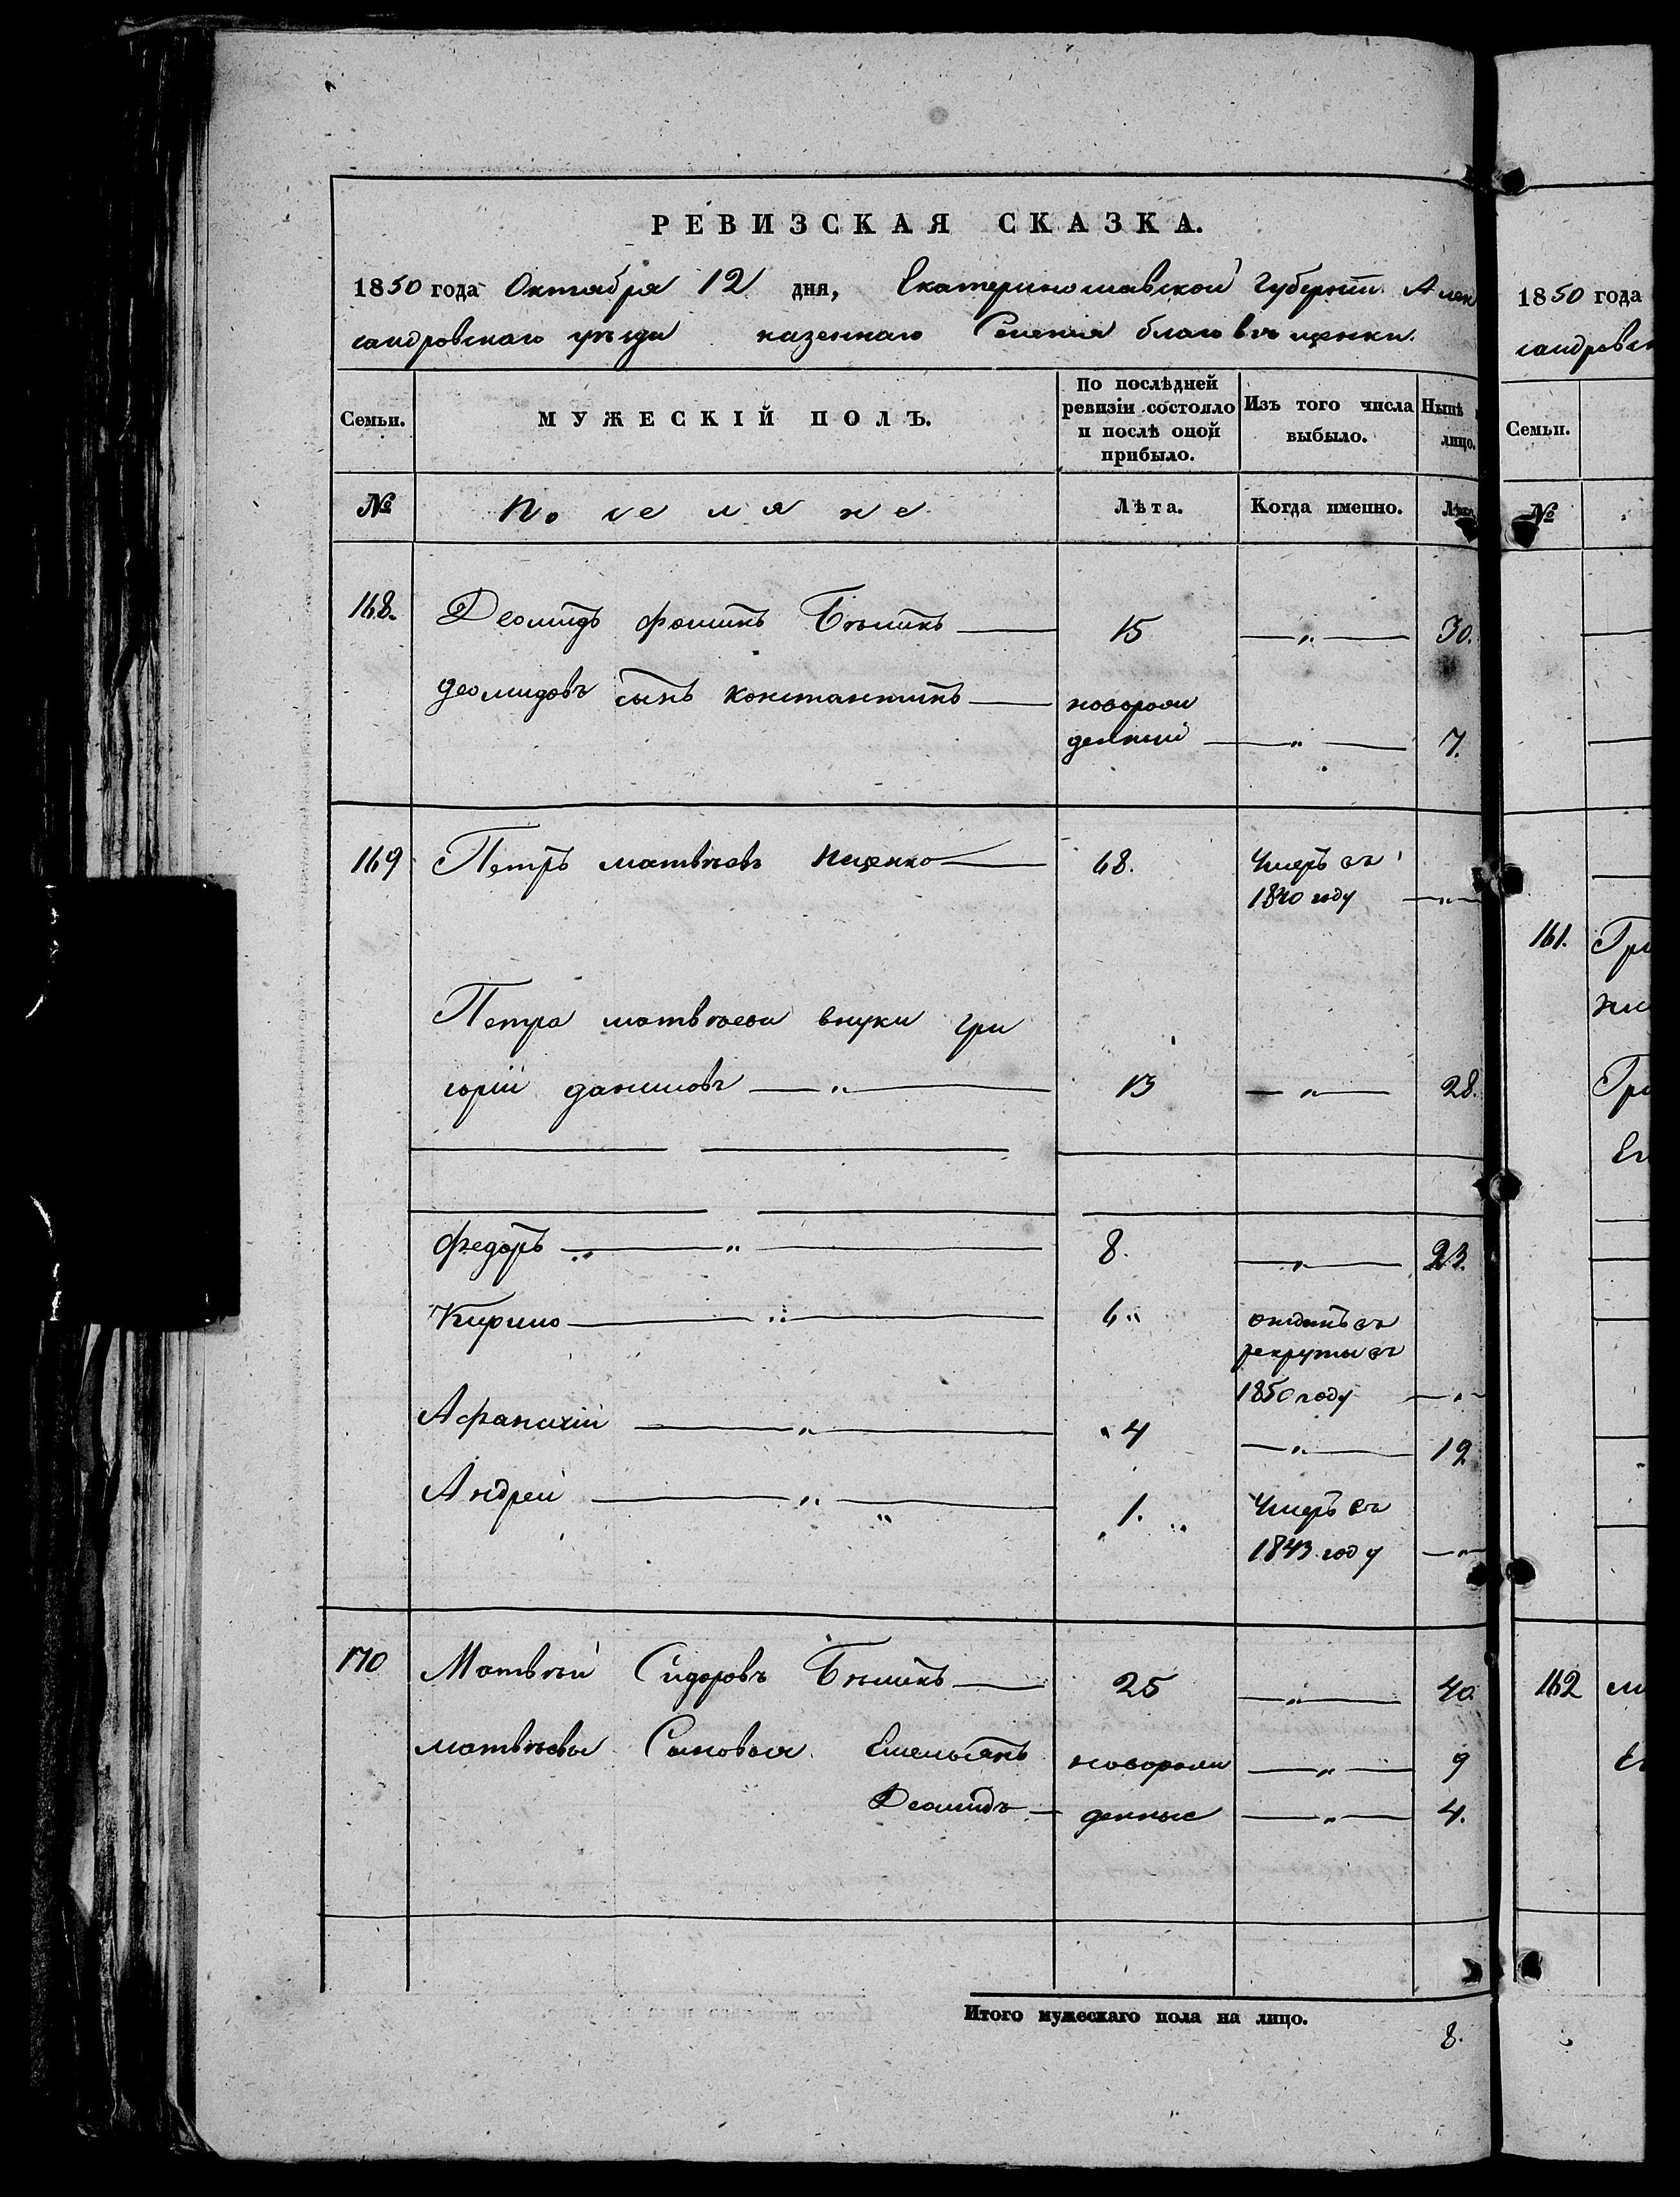 РЕВИЗСКАЯ СКАЗКА.
1850 года Октября 12 дня, Екатеринославской губернiи Алек
сандровскаго уѣзда казеннаго Селенiя благовѣщенки.
Семьи. МУЖЕСКІЙ ПОЛЪ. По послѣдней ревизіи состояло и послѣ оной прибыло. Изъ того числа выбыло. Нынѣ лицо.
№ Поселяне Лѣта. Когда именно. Лѣта
168. Деомидъ фоминъ Бѣликъ 15 — „ — 30.
деомидовъ сынъ константинъ новорож
денный — „ — 7.
169 Петръ матвѣевъ 68. Умеръ въ
1840 году — „ —
Петра матвѣева внуки гри
горiй даниловъ — „ — 13 — „ — 28.
федоръ — „ — 8. — „ — 23.
Кирило — „ — 6 „ отданъ въ
рекруты въ
1850 году — „ —
Афанасiй — „ — 4 — „ — 19
Андрей — „ — 1. „ Умеръ въ
1843 году — „ —
170 Матвѣй Сидоровъ Бѣликъ 25 — „ — 40.
матвѣевы Сыновья Емельянъ новорож — „ — 9
Деомидъ — денные — „ — 4.
Итого мужескаго пола на лицо.
8.
1850 года
сандровск
Семьи.
№
161. Гри
Гри
162